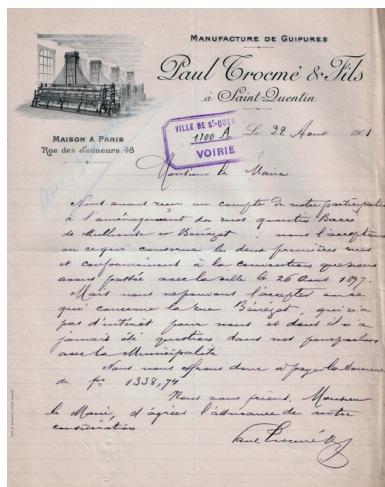 MANUFACTURE DE GUIPURES
Paul Trocmé & Fils
à Saint-Quentin
MAISON A PARIS
Rue des Jeûneurs, 48
VILLE DE St-QUEN
1100 A
VOIRIE
Le 22 Aout 190
Monsieur le Maire
Nous avons reçu un compte de notre participation
à l'aménagement des rues quentin Barré
de Mulhouse et Bénézet ; nous l'acceptons
en ce qui concerne les deux premières rues
et conformément à la convention que nous
avons passée avec la ville le 26 Aout 1897.
Mais nous ne pouvons l'accepter en ce
qui concerne la rue Bénézet, qui n'a
pas d'intérêt pour nous et dont il n'a
jamais été question dans nos pourparlers
avec la Municipalité
Nous nous offrons donc à payer la somme
de frs 1338,74
Nous vous prions, Monsieur
le Maire, d'agréer l'assurance de notre
considération
Paul Trocmé & f